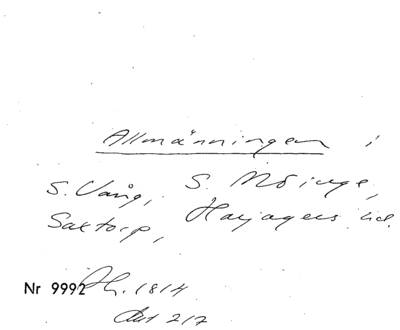 Allmänningen i
S. Vång, S. Möinge,
Saxtorp, Harjagers hd.
Nr 9992 1814
217